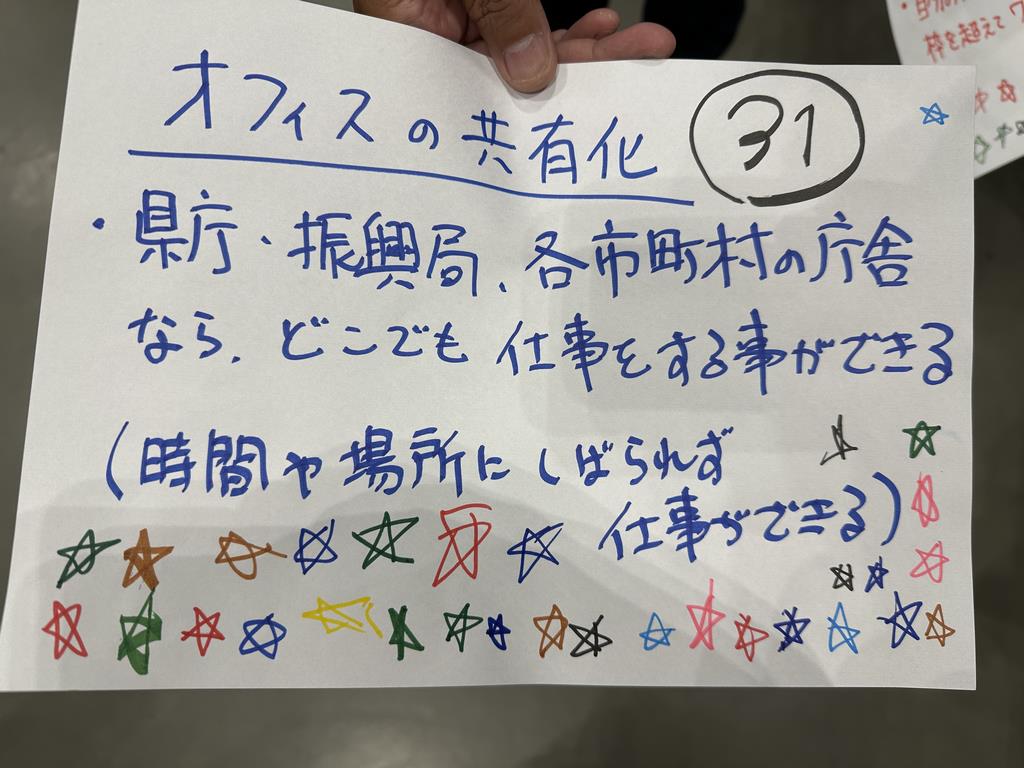 オフィスの共有化 31
・県庁・振興局、各市町村の庁舎
なら、どこでも仕事をする事ができる
(時間や場所にしばられず
仕事ができる)
枠を超えて